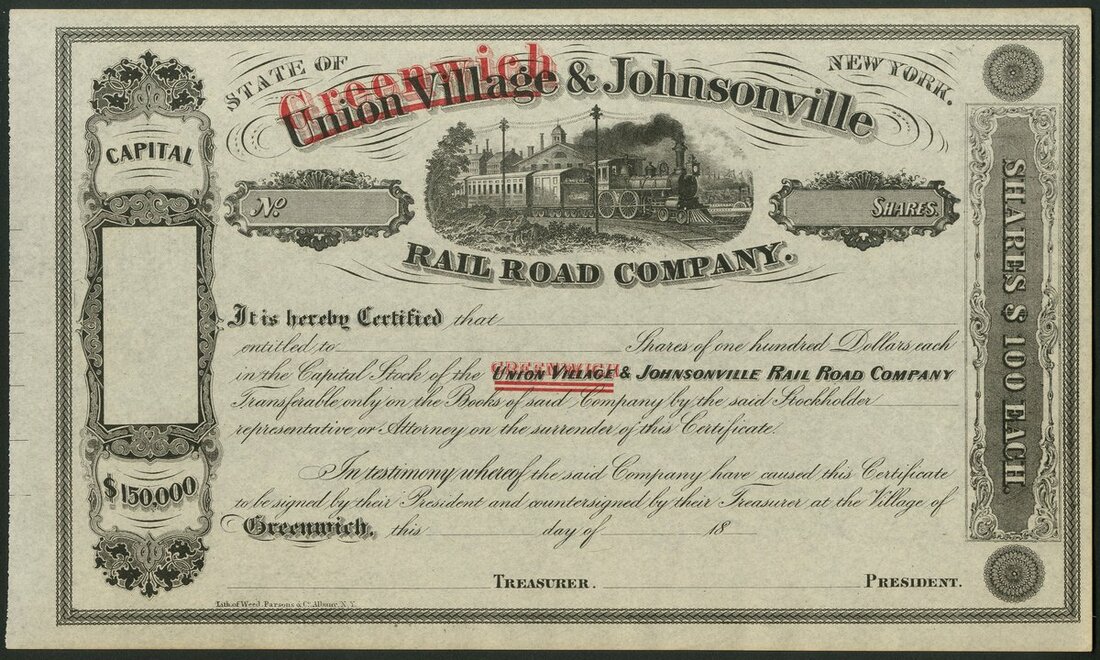 STATE OF
NEW YORK.
Greenwich
Union Village & Johnsonville
CAPITAL
No
SHARES.
RAIL ROAD COMPANY.
It is hereby Certified that
entitled to Shares of one hundred Dollars each
GREENWICH
in the Capital Stock of the UNION VILLAGE & JOHNSONVILLE RAIL ROAD COMPANY
Transferable only on the Books of said Company by the said Stockholder
representative or Attorney on the surrender of this Certificate.
In testimony whereof the said Company have caused this Certificate
$150,000
to be signed by their President and countersigned by their Treasurer at the Village of
Greenwich, this day of 18
TREASURER. PRESIDENT.
Lith. of Weed, Parsons & Co. Albany, N.Y.
SHARES $100 EACH.